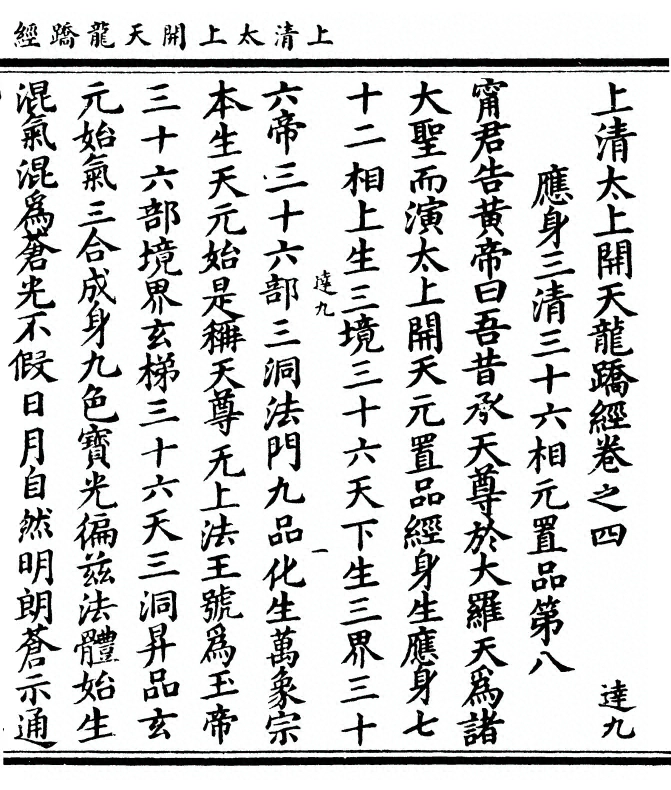 上清太上開天龍蹻經
上清太上開天龍蹻經卷之四
達九
應身三清三十六相元置品第八
甯君告黃帝曰吾昔承天尊於大羅天爲諸
大聖而演太上開天元置品經身生應身七
十二相上生三境三十六天下生三界三十
達九
一
六帝三十六部三洞法門九品化生萬象宗
本生天元始是稱天尊无上法王號爲玉帝
三十六部境界玄梯三十六天三洞昇品玄
元始氣三合成身九色寶光徧茲法體始生
混氣混爲蒼光不假日月自然明朗蒼示通